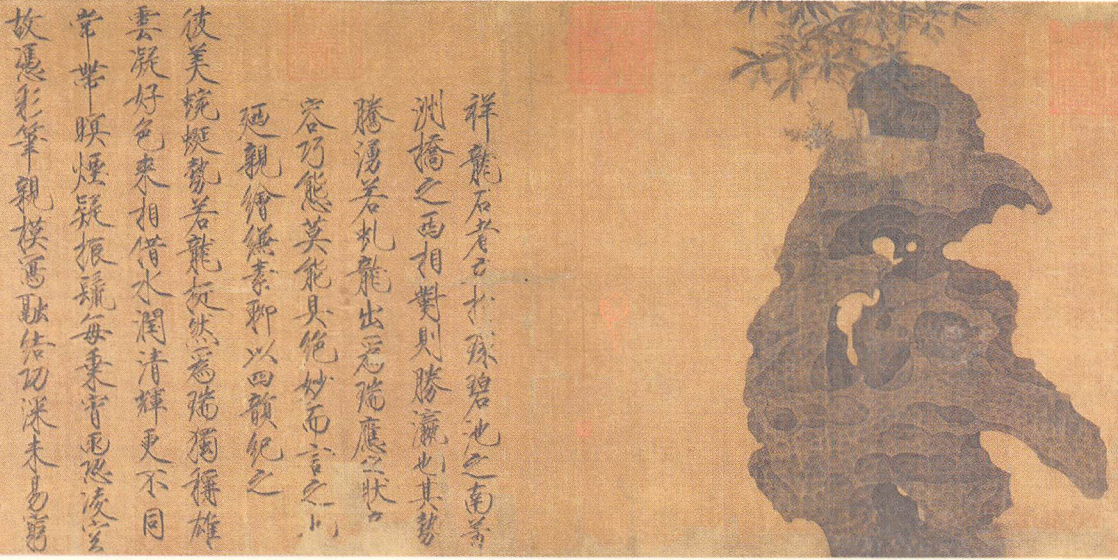 祥龍石者立於環碧池之南芳
洲橋之西相對則勝瀛也其勢
騰湧若虬龍出為瑞應之狀奇
容巧態莫能具絕妙而言之也
廼親繪縑素聊以四韻紀之
彼美蜿蜒勢若龍挺然為瑞獨稱雄
雲凝好色來相借水潤清輝更不同
常帶暝煙疑振鬣每乘宵雨恐凌空
故憑彩筆親模寫融結功深未易窮